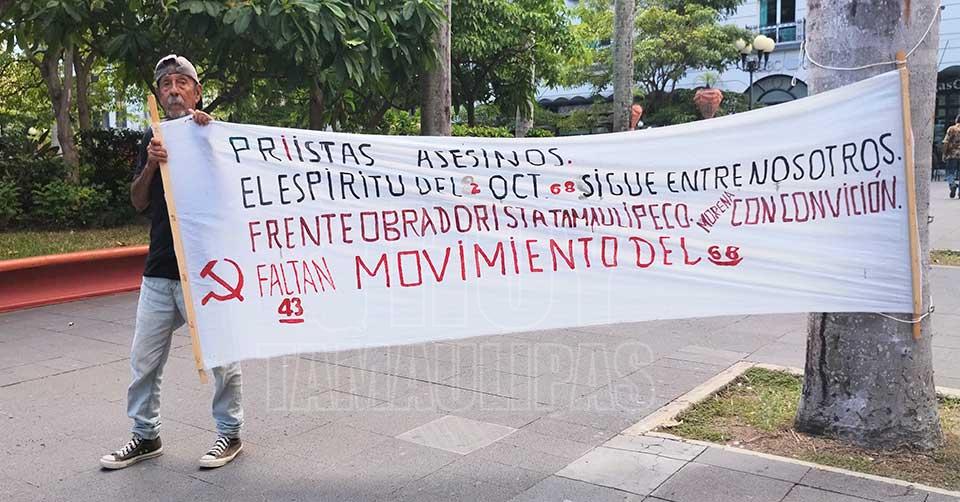 PRIÍSTAS ASESINOS.
EL ESPÍRITU DEL 2 OCT. 68 SIGUE ENTRE NOSOTROS.
FRENTE OBRADORISTA TAMAULIPECO. MORENA CON CONVICIÓN.
FALTAN MOVIMIENTO DEL 68
43
HOY
TAMAULIPAS